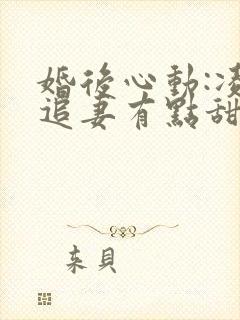 婚後心動:凌
追妻有點甜
來貝